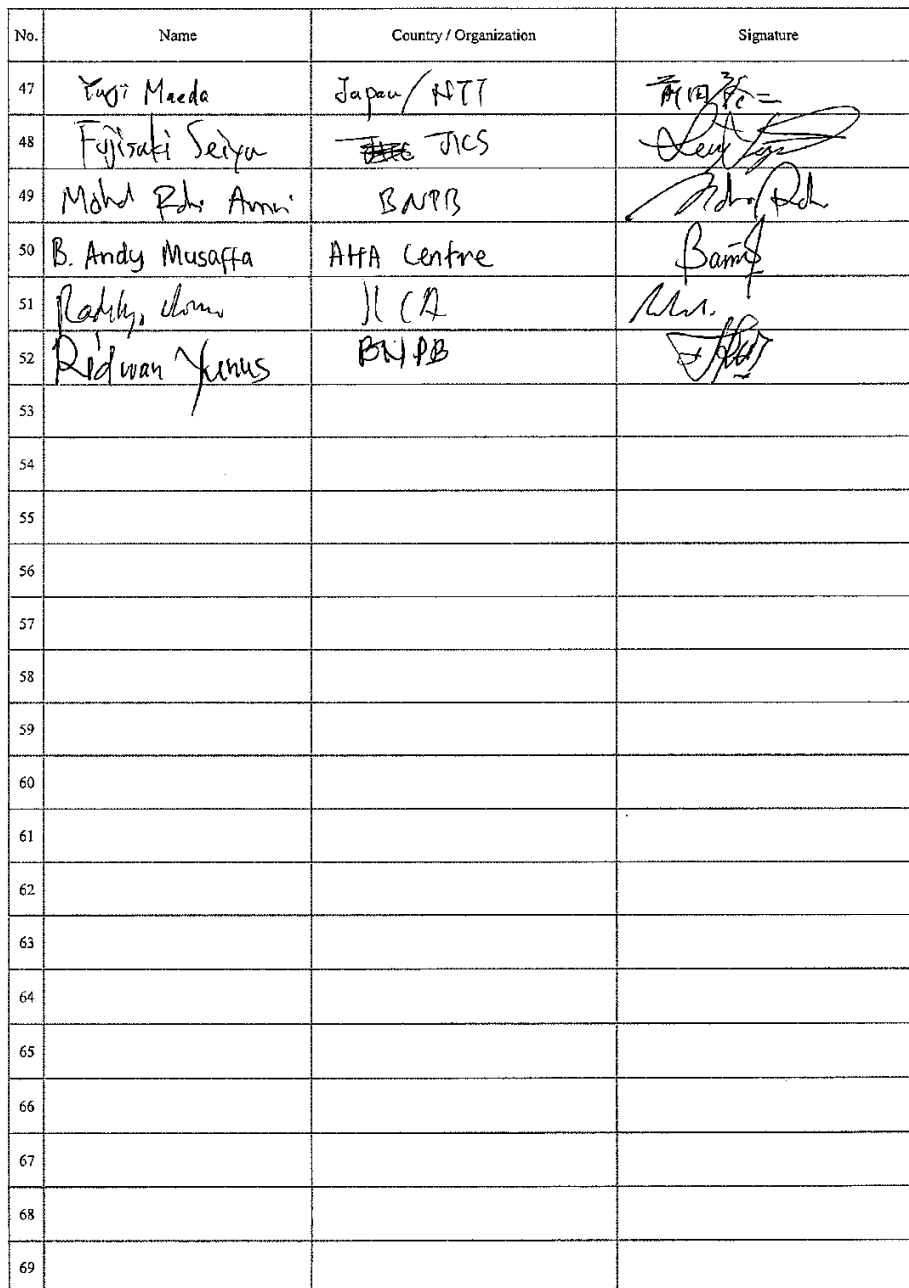 No. Name Country / Organization Signature
47 Yuji Maeda Japan / NTT 前田裕二
48 Fujisaki Seiya JICS
49 Mohd Robi Amri BNPB
50 B. Andy Musaffa AHA Centre
51 JICA
52 Ridwan Yunus BNPB
53
54
55
56
57
58
59
60
61
62
63
64
65
66
67
68
69